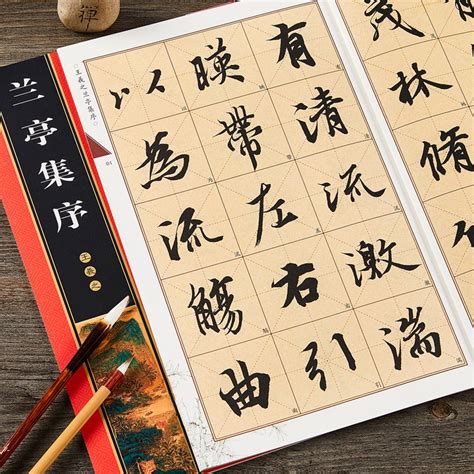 禪
茂林脩
有清流激湍
暎帶左右引
以為流觴曲
王羲之兰亭集序
01
兰亭集序
王羲之